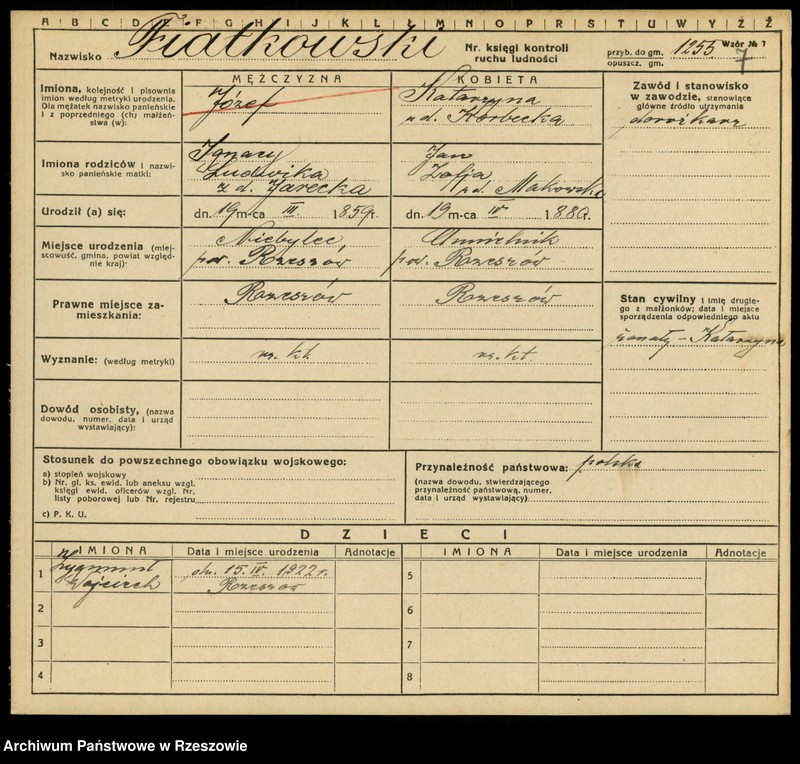 A B C D E F G H I J K L Ł M N O P R S T U W Y Z Ż
Nazwisko Fiałkowski
Nr. księgi kontroli ruchu ludności
przyb. do gm. 1255
opuszcz. gm.
Wzór № 7
7
MĘŻCZYZNA
KOBIETA
Imiona, kolejność i pisownia
imion według metryki urodzenia.
Dla mężatek nazwisko panieńskie
i z poprzedniego (ch) małżeń-
stwa (w):
Józef
Katarzyna
z d. Horbecka
Imiona rodziców i nazwi-
sko panieńskie matki:
Ignacy
Ludwika
z d. Jarecka
Jan
Zofja
z d. Makowska
Urodził (a) się:
dn. 19 m-ca III. 1859 r.
dn. 19 m-ca IV 1880.
Miejsce urodzenia (miej-
scowość, gmina, powiat względ-
nie kraj):
Niebylec
pow. Rzeszów
Chmielnik
pow. Rzeszów
Prawne miejsce za-
mieszkania:
Rzeszów
Rzeszów
Wyznanie: (według metryki)
rz. kt.
rz. kt
Dowód osobisty, (nazwa
dowodu, numer, data i urząd
wystawiający):
Zawód i stanowisko
w zawodzie, stanowiące
główne źródło utrzymania
dorożkarz
Stan cywilny i imię drugie-
go z małżonków; data i miejsce
sporządzenia odpowiedniego aktu
żonaty - Katarzyna
Stosunek do powszechnego obowiązku wojskowego:
a) stopień wojskowy
b) Nr. gł. ks. ewid. lub aneksu wzgl.
księgi ewid. oficerów wzgl. Nr.
listy poborowej lub Nr. rejestru
c) P. K. U.
Przynależność państwowa: polska
(nazwa dowodu, stwierdzającego
przynależność państwową, numer,
data i urząd wystawiający)
DZIECI
IMIONA Data i miejsce urodzenia Adnotacje
IMIONA Data i miejsce urodzenia Adnotacje
1 Zygmunt
Wojciech
dn. 15. IV. 1922 r.
Rzeszów
2
3
4
5
6
7
8
Archiwum Państwowe w Rzeszowie